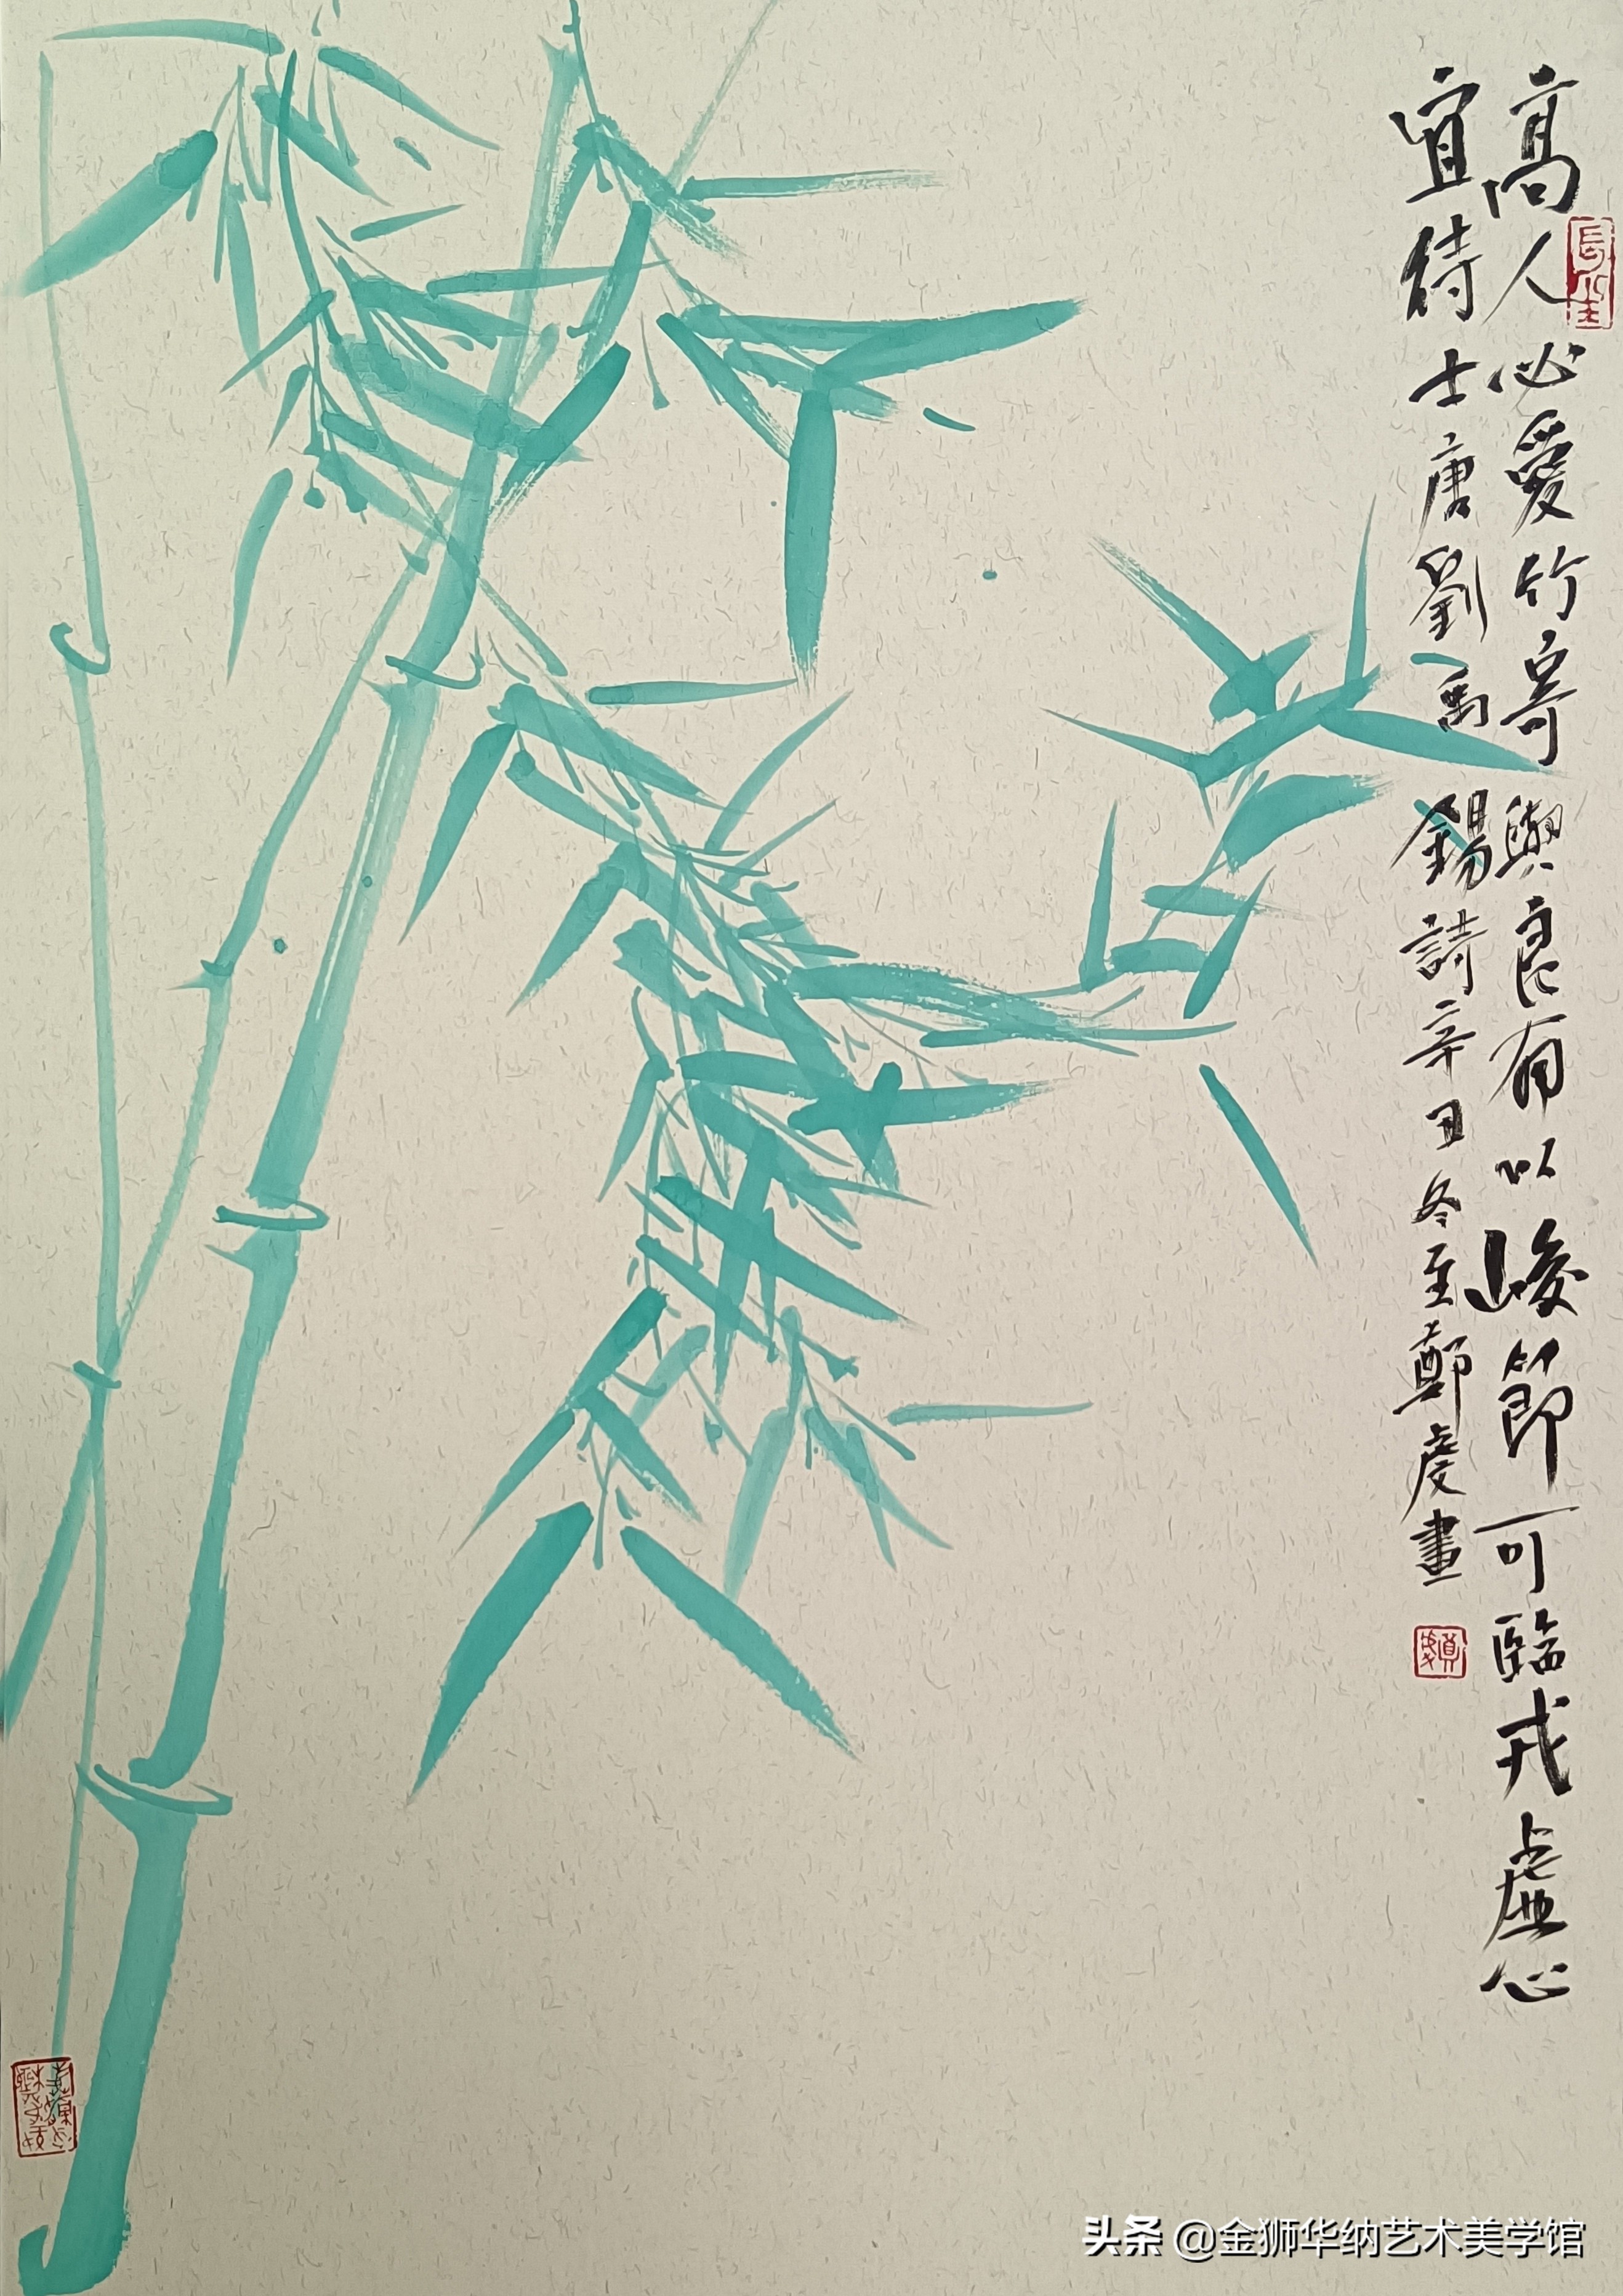 高人必爱竹寄興良有以峻節可臨戎虛心
宜待士唐劉禹錫詩辛丑冬至鄭慶畫
头条 @金狮华纳艺术美学馆